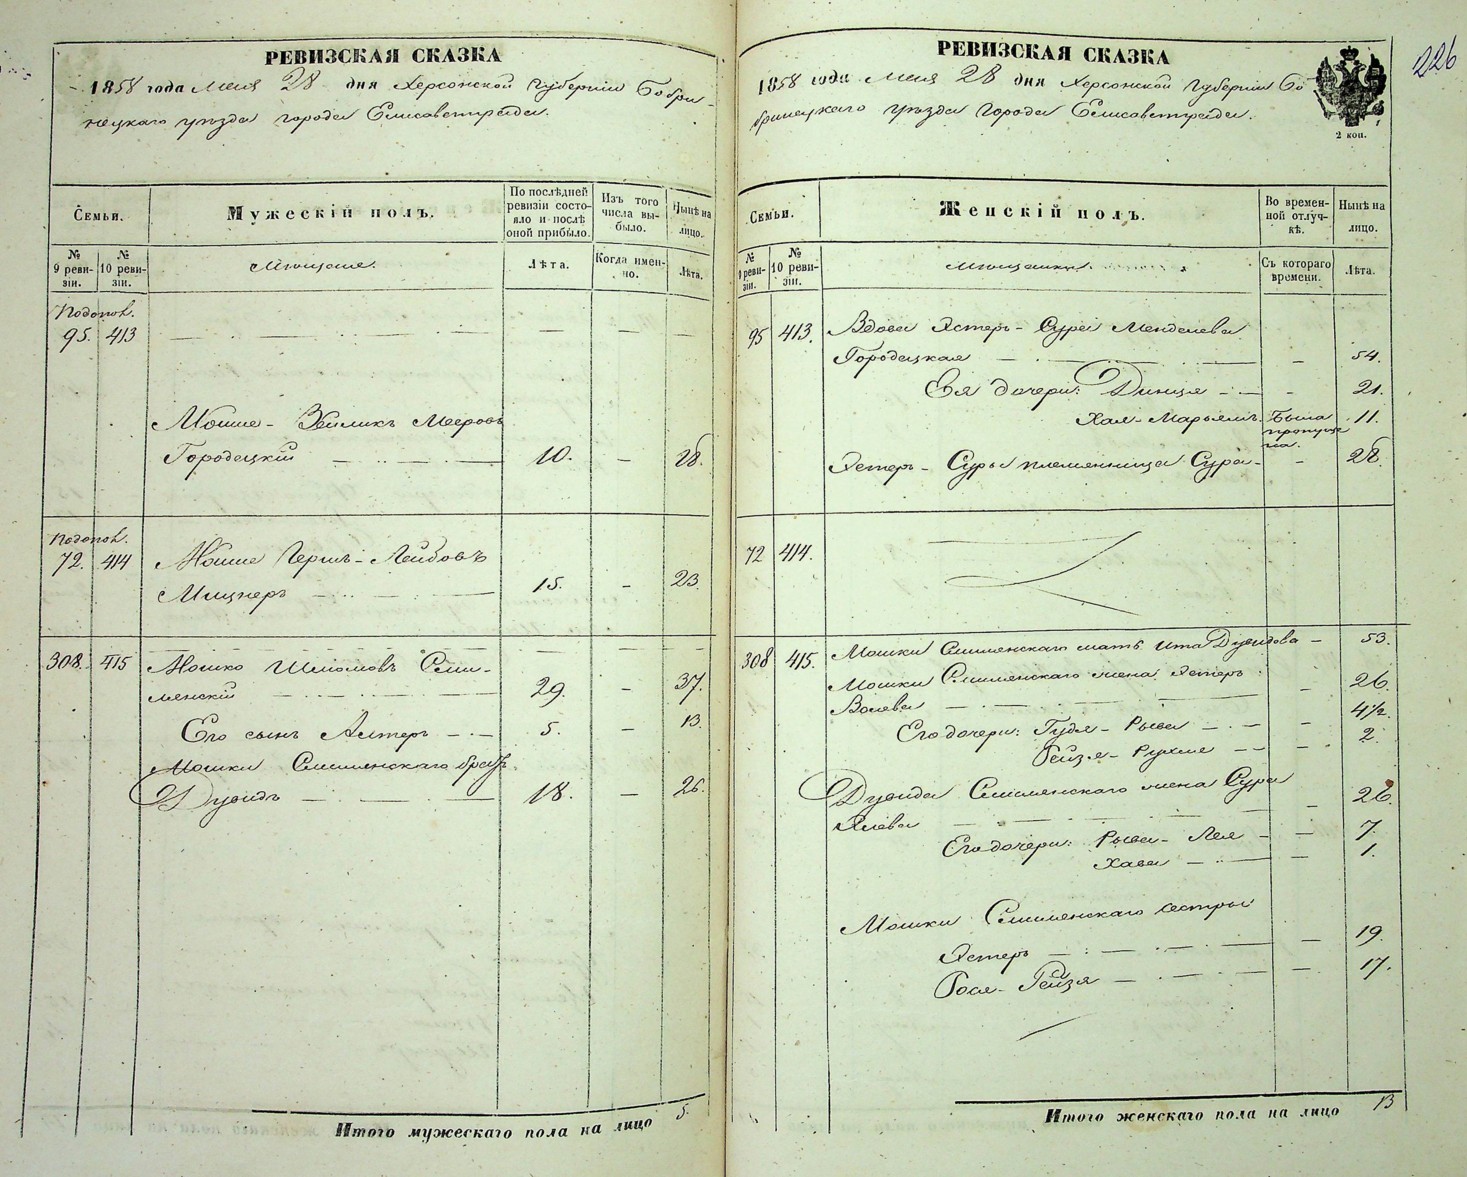 226
РЕВИЗСКАЯ СКАЗКА
1858 года Мая 28 дня Херсонской Губернии Бобри-
нецкаго уезда города Елисаветграда.
Семьи.
Мужескій полъ.
По послѣдней ревизіи состо-яло и послѣ оной прибыло.
Изъ того числа вы-было.
Нынѣ на лицо.
№ 9 реви-зіи.
№ 10 реви-зіи.
Мещане.
Лѣта.
Когда имен-но.
Лѣта.
Подопол.
95. 413
Мошие-Зейликъ Мееровъ
Городецкій 10. 28.
Подопол.
72. 414 Мошие Гершъ-Лейбовъ
Мицнеръ 15. 23.
308. 415 Мошко Шлиомовъ Сми-
лянскій 29. 37.
Его сынъ Алтеръ 5. 13.
Мошки Смилянскаго братъ
Дувидъ 18. 26.
Итого мужескаго пола на лицо 5.
РЕВИЗСКАЯ СКАЗКА
1858 года Мая 28 дня Херсонской Губернии Бо
бринецкаго уезда города Елисаветграда.
2 коп.
Семьи.
Женскій полъ.
Во времен-ной отлуч-кѣ.
Нынѣ на лицо.
№ 9 реви-зіи.
№ 10 реви-зіи.
Мещанки
Съ котораго времени.
Лѣта.
95 413. Вдова Эстеръ-Сура Менделева
Городецкая 54.
Ея дочери: Динця 21.
Хая-Марьямъ. Была пропуще на. 11.
Эстеръ-Суры племянница Сура 28.
72 414.
308 415. Мошки Смилянскаго мать Ита Дувидова 53.
Мошки Смилянскаго жена Эстеръ
Волева 26.
Его дочери: Гудя-Рыва 4½.
Рейзя-Рухля 2.
Дувида Смилянскаго жена Сура
Элева 26.
Его дочери: Рыва-Лея 7.
Хава 1.
Мошки Смилянскаго сестры
Эстеръ 19.
Бася-Рейзя 17.
Итого женскаго пола на лицо 13